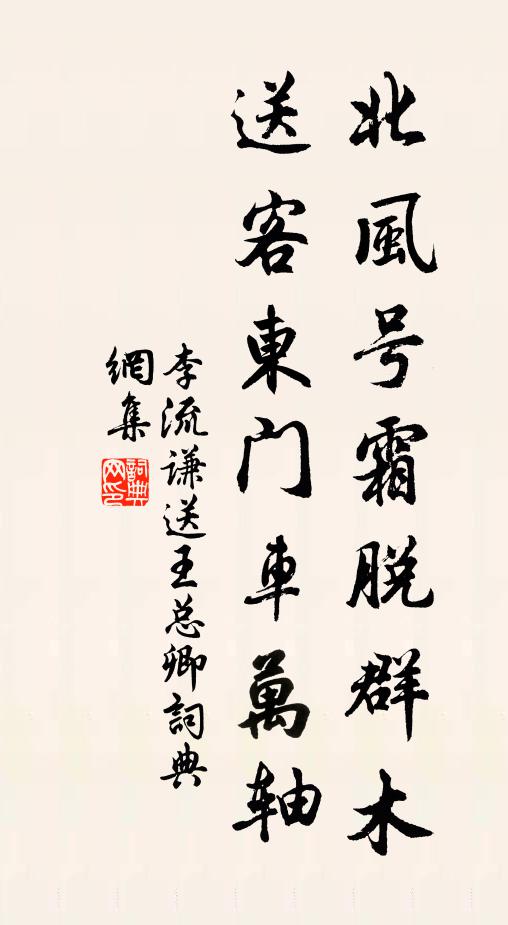 北風号霜脱群木
送客東门車萬轴
李流谦送王总卿詞典
網集
詞典
网印